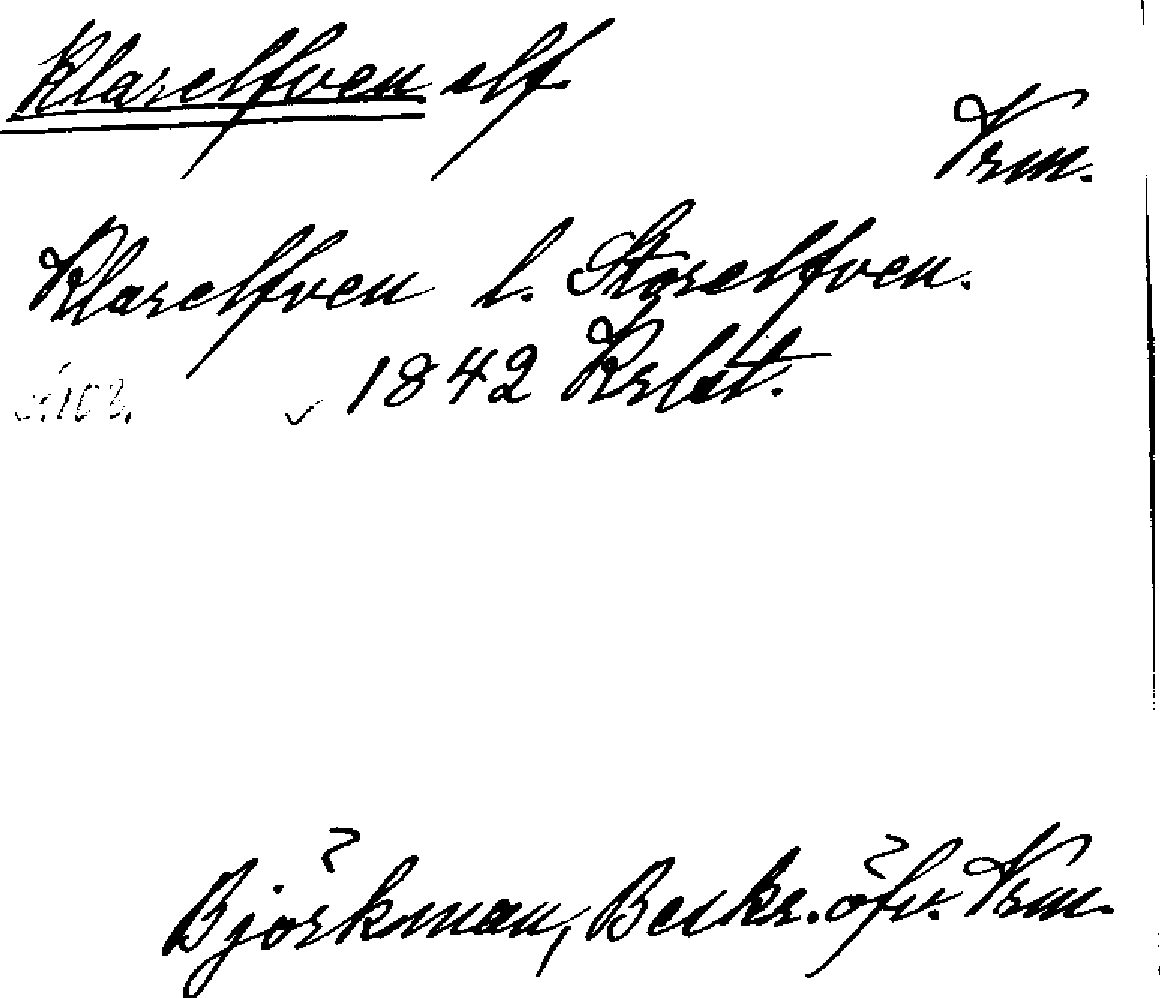 Klarelfven elf
Vrm.
Klarelfven l. Storelfven.
1842 Krlst.
Björkman, Beskr. öfv. Vrm.